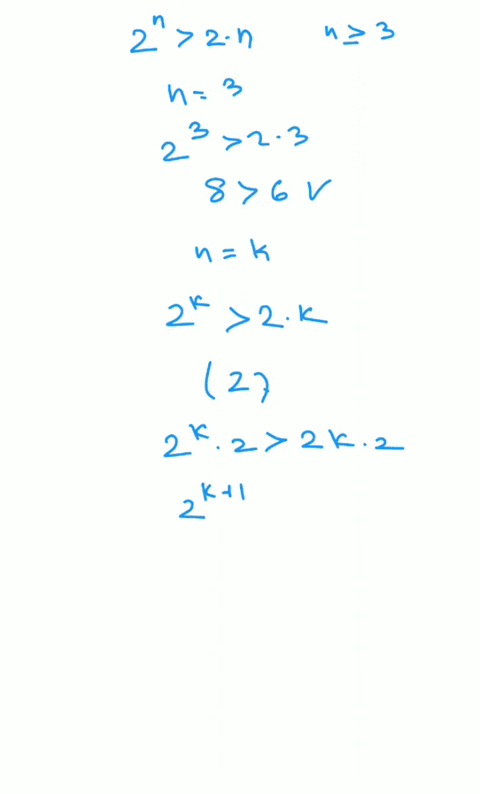 2ⁿ > 2·n n ≥ 3
n = 3
2³ > 2·3
8 > 6 ✓
n = k
2ᵏ > 2·k
(2)
2ᵏ · 2 > 2k · 2
2ᵏ⁺¹